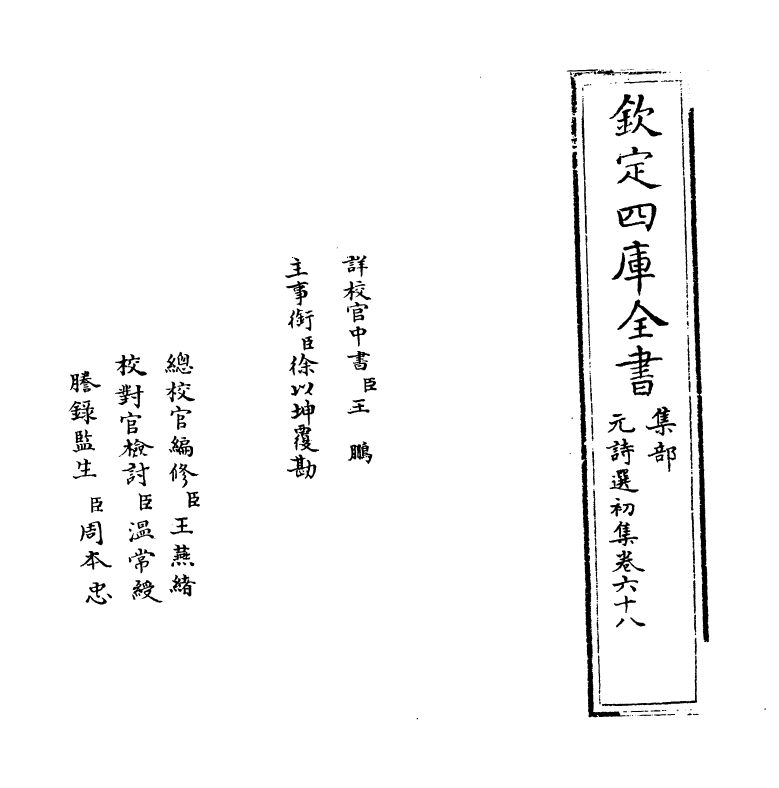 欽定四庫全書
集部
元詩選初集卷六十八
詳校官中書臣王鵬
主事銜臣徐以坤覆勘
總校官編修臣王燕緒
校對官檢討臣溫常綬
謄錄監生臣周本忠